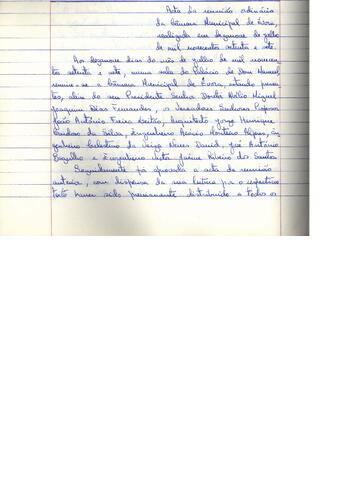 Acta da reunião ordinária
da Câmara Municipal de Évora,
realizada em dezanove de julho
de mil novecentos setenta e sete.
Aos dezanove dias do mês de julho de mil novecen-
tos setenta e sete, numa sala do Palácio de Dom Manuel,
reuniu-se a Câmara Municipal de Évora, estando presen-
tes, além do seu Presidente Senhor Doutor Abílio Miguel
Joaquim Dias Fernandes, os Vereadores Senhores Professor
João António Freire, Arquitecto Jorge Henrique
Cardoso da Silva, Engenheiro Acácio Monteiro Alferes, En-
genheiro Celestino da Veiga Neves David, José António
e Engenheiro Victor Jaime Ribeiro dos Santos
Seguidamente foi aprovada a acta da reunião
anterior, com dispensa da sua leitura por o respectivo
texto haver sido previamente distribuído a todos os